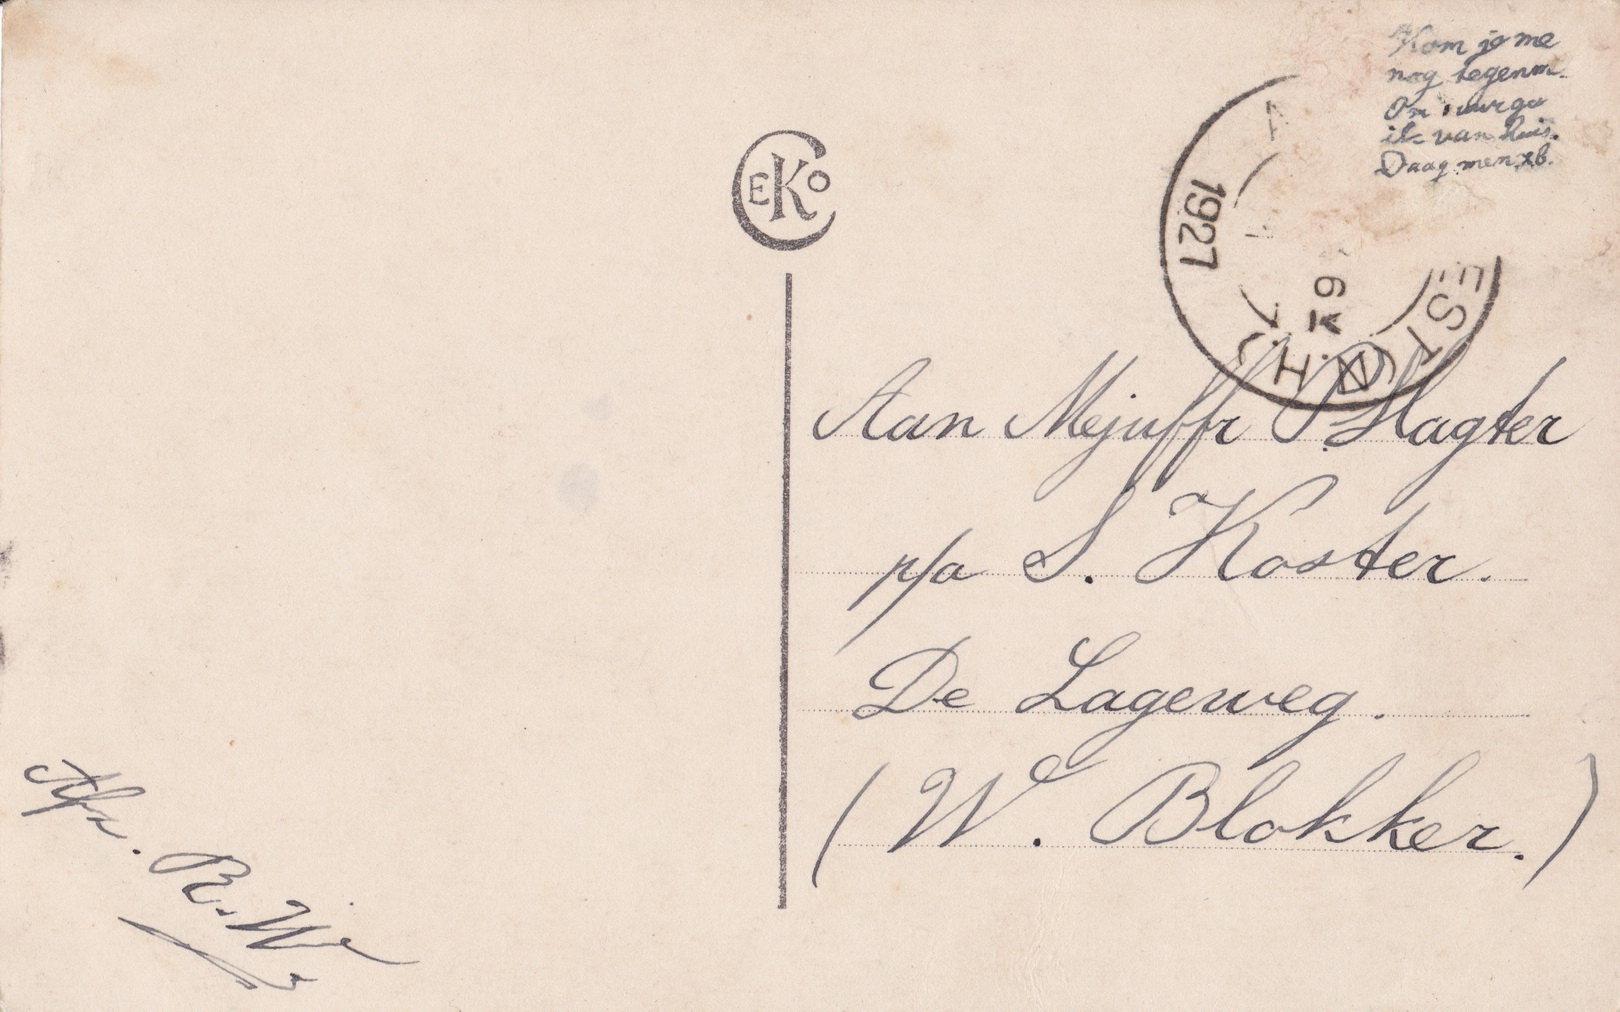 Kom je me
nog tegem.
Om 1 uur ga
ik van huis.
Daag men xb.
1927
6
EST
N.H.
CEKO
Aan Mejuffr P. Slagter
p/a S. Koster.
De Lageweg.
(W. Blokker.)
Afz. R. W.